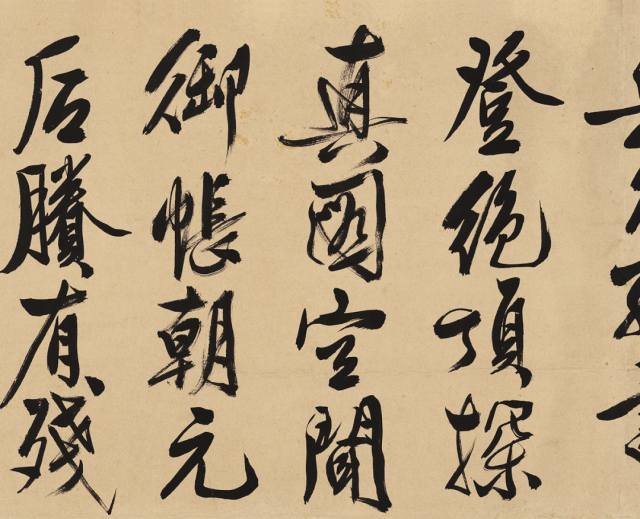 登絕頂探
真圖空聞
御帳朝元
后賸有殘